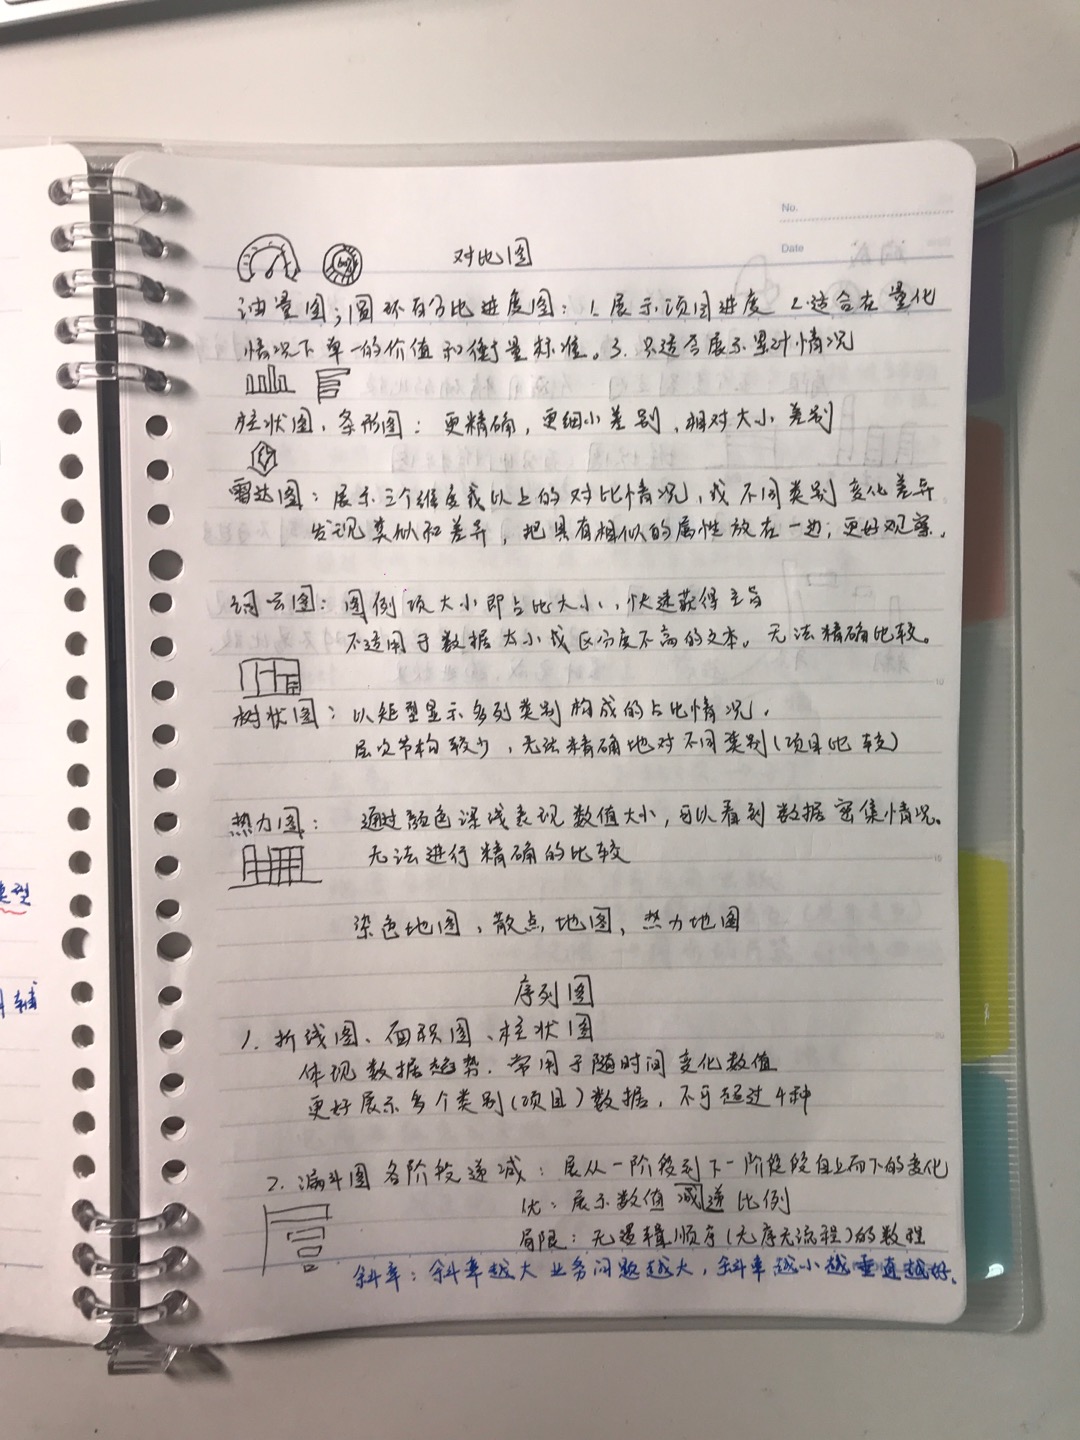 No.
Date
对比图
油量图；圆环百分比进度图：1. 展示项目进度 2. 适合在量化
情况下单一的价值和衡量标准。3. 只适合展示累计情况
柱状图、条形图：更精确，更细小差别，相对大小差别
雷达图：展示三个维度或以上的对比情况，或不同类别变化差异
发现类似和差异，把具有相似的属性放在一边，更好观察。
词云图：图例项大小即占比大小，快速获得主旨
不适用于数据太小或区分度不高的文本。无法精确比较。
树状图：以矩型显示多列类别构成的占比情况，
层次节构较少，无法精确地对不同类别(项目比较)
热力图：通过颜色深浅表现数值大小，可以看到数据密集情况。
无法进行精确的比较
染色地图，散点地图，热力地图
序列图
1. 折线图、面积图、柱状图
体现数据趋势．常用于随时间变化数值
更好展示多个类别(项目)数据，不可超过4种
2. 漏斗图 各阶段递减：展从一阶段到下一阶段自上而下的变化
优：展示数值减递比例
局限：无逻辑顺序(无序无流程)的数程
斜率：斜率越大业务问题越大，斜率越小越垂直越好.
类型
辅
10
15
20